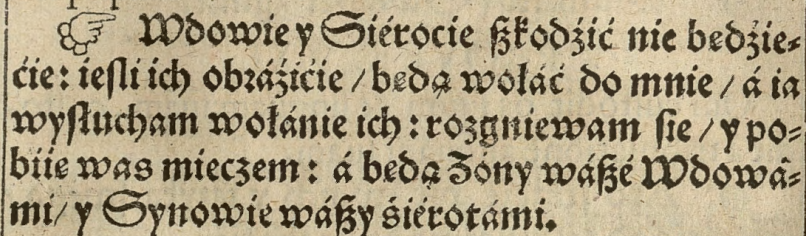 ☞ Wdowie y Siérocie ßkodźić nie bedźie⸗
ćie: ieſli ich obráźićie / bedą wołáć do mnie / á ia
wyſłucham wołánie ich: rozgniewam ſie / y po⸗
biię was mieczem: á bedą Żony wáßé Wdowá⸗
mi / y Synowie wáßy śiérotámi.